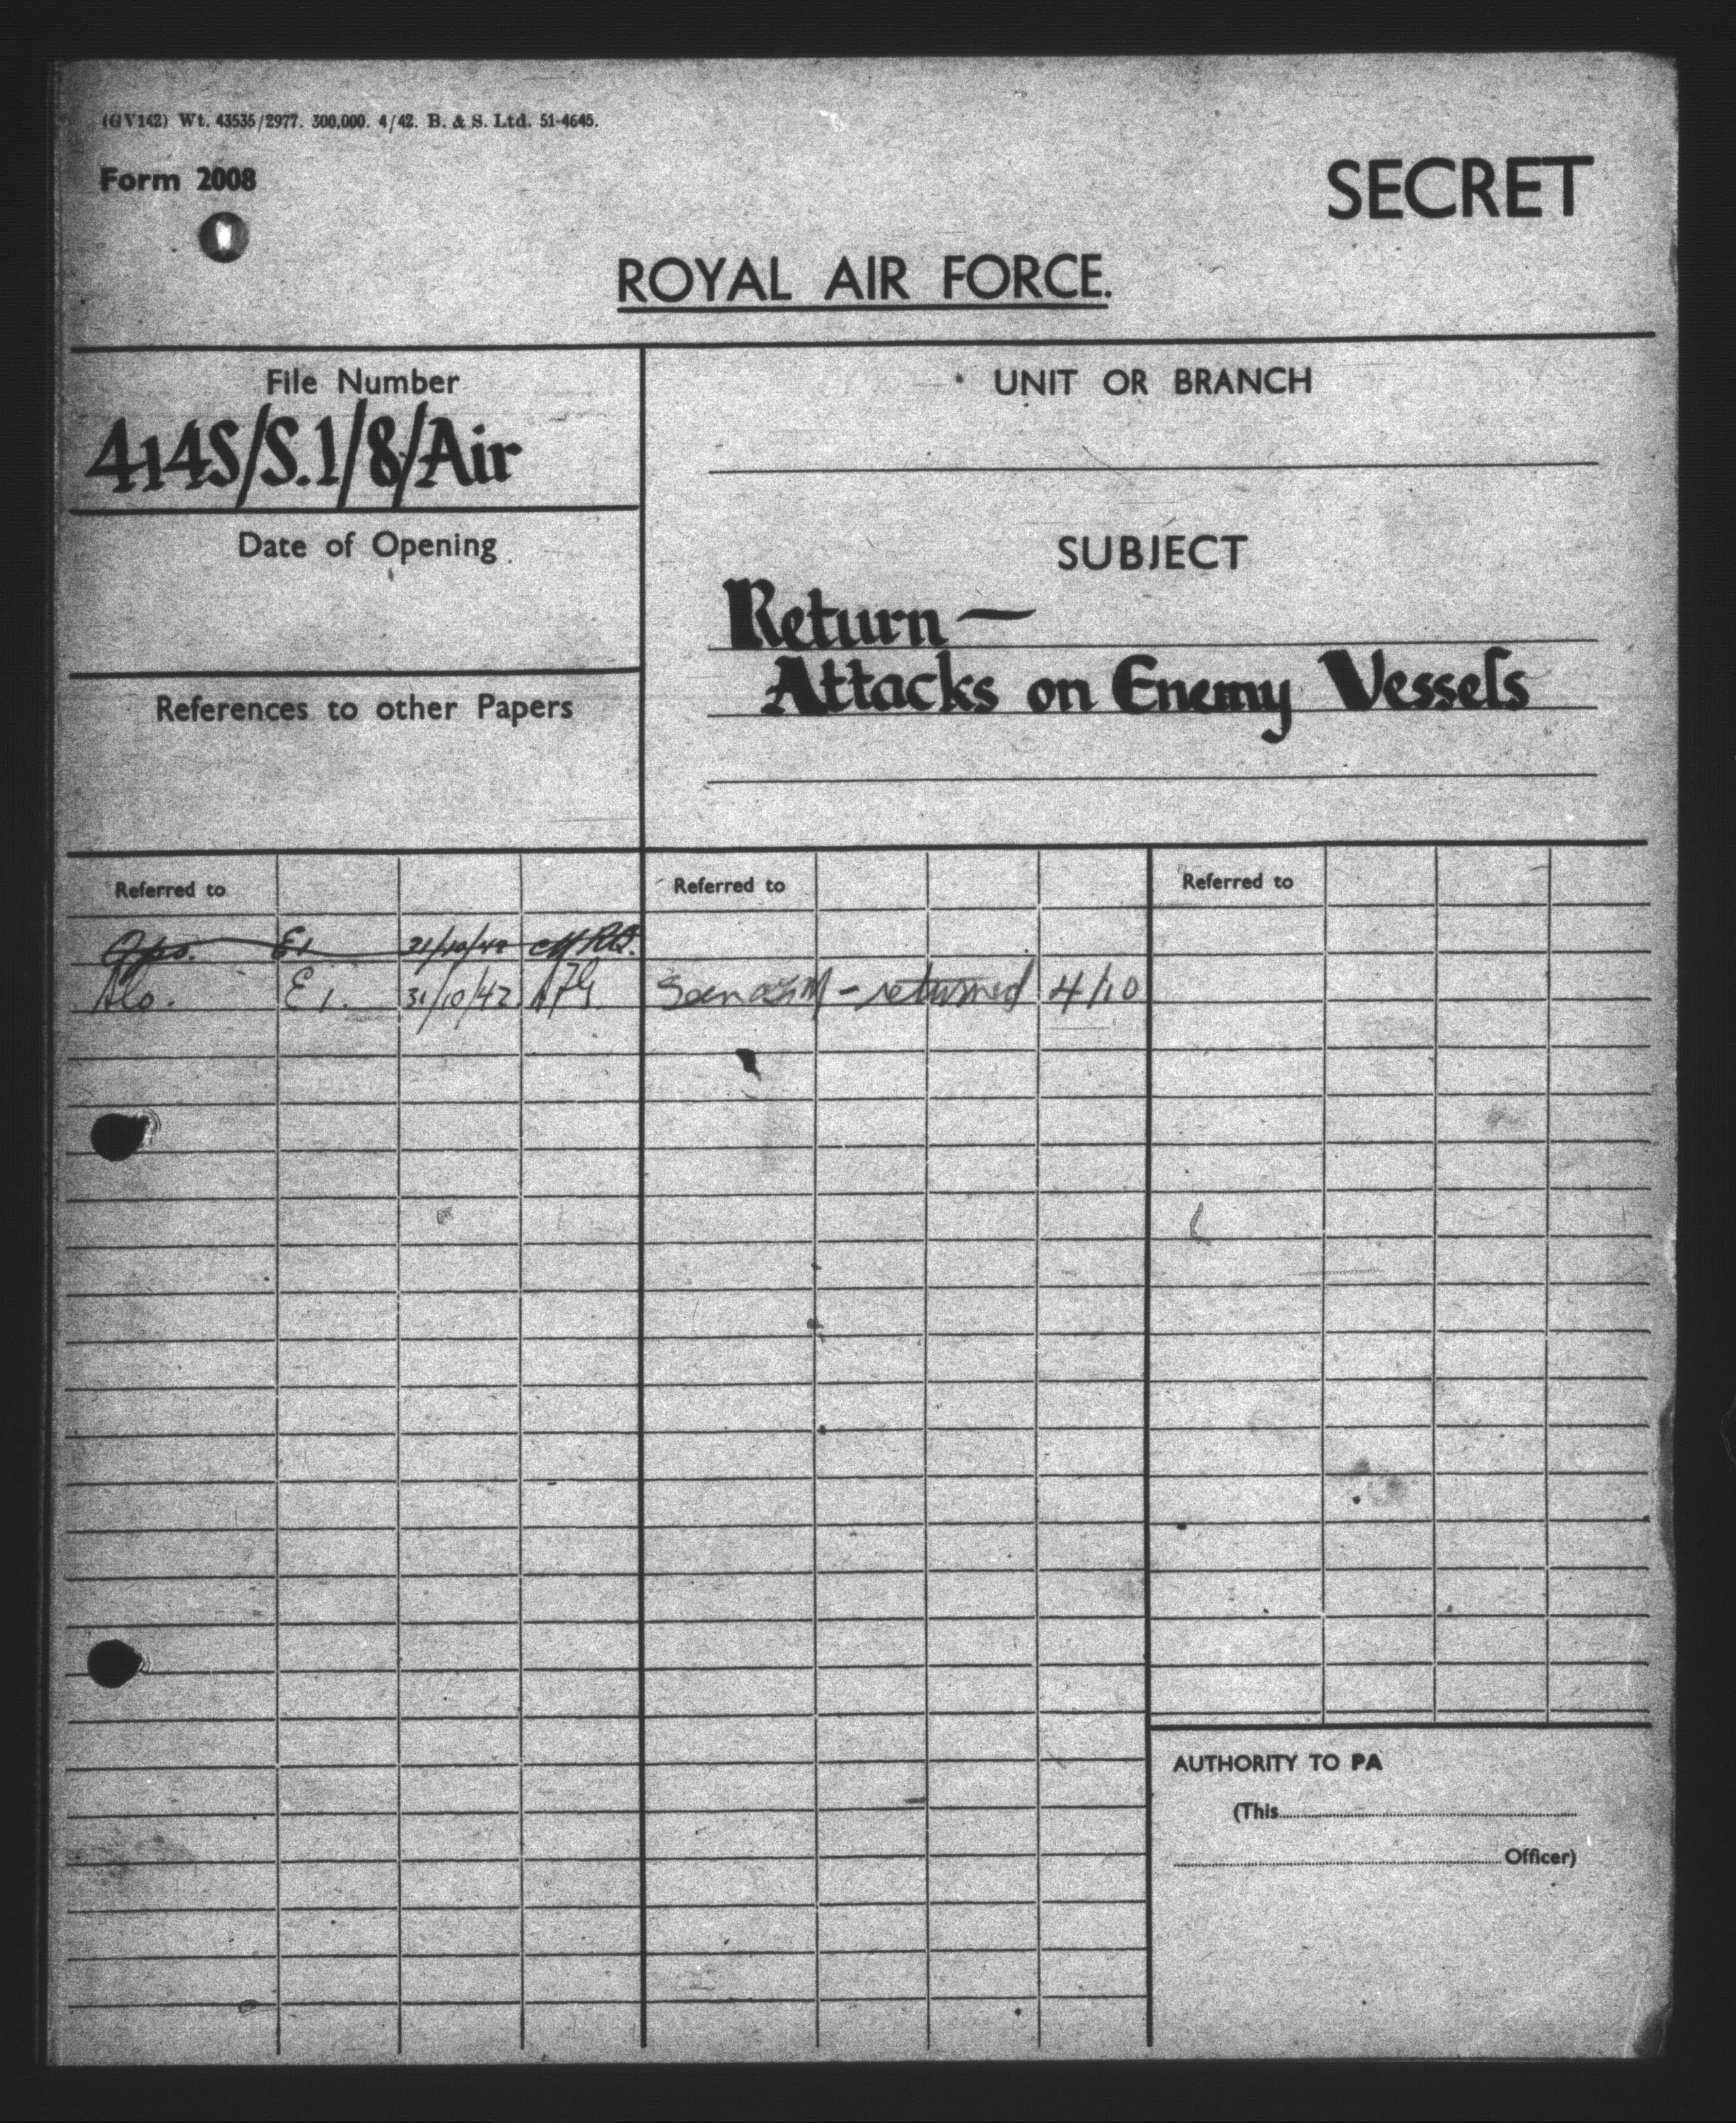 (GV142) Wt. 43535/2977. 300,000. 4/42. B. & S. Ltd. 51-4645.
Form 2008
SECRET
ROYAL AIR FORCE.
File Number
414S/S.1/8/Air
Date of Opening
References to other Papers
UNIT OR BRANCH
SUBJECT
Return —
Attacks on Enemy Vessels
Referred to
Referred to
Referred to
Ops. E1
E1. 31/10/42
- returned 4/10
AUTHORITY TO PA
(This
Officer)